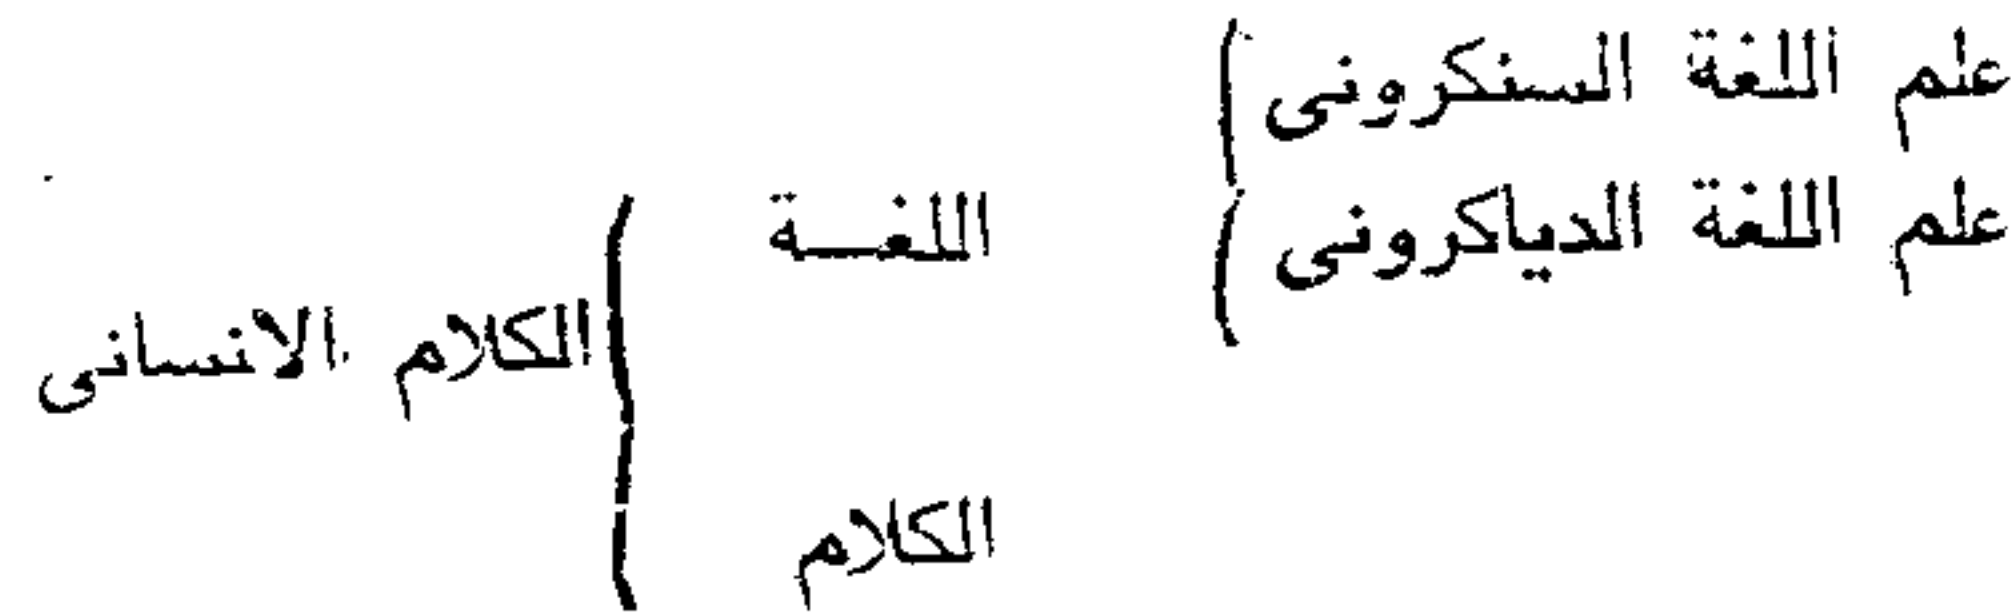 علم اللغة السنكرونى
علم اللغة الدياكرونى
اللغــة
الكلام الانسانى
الكلام